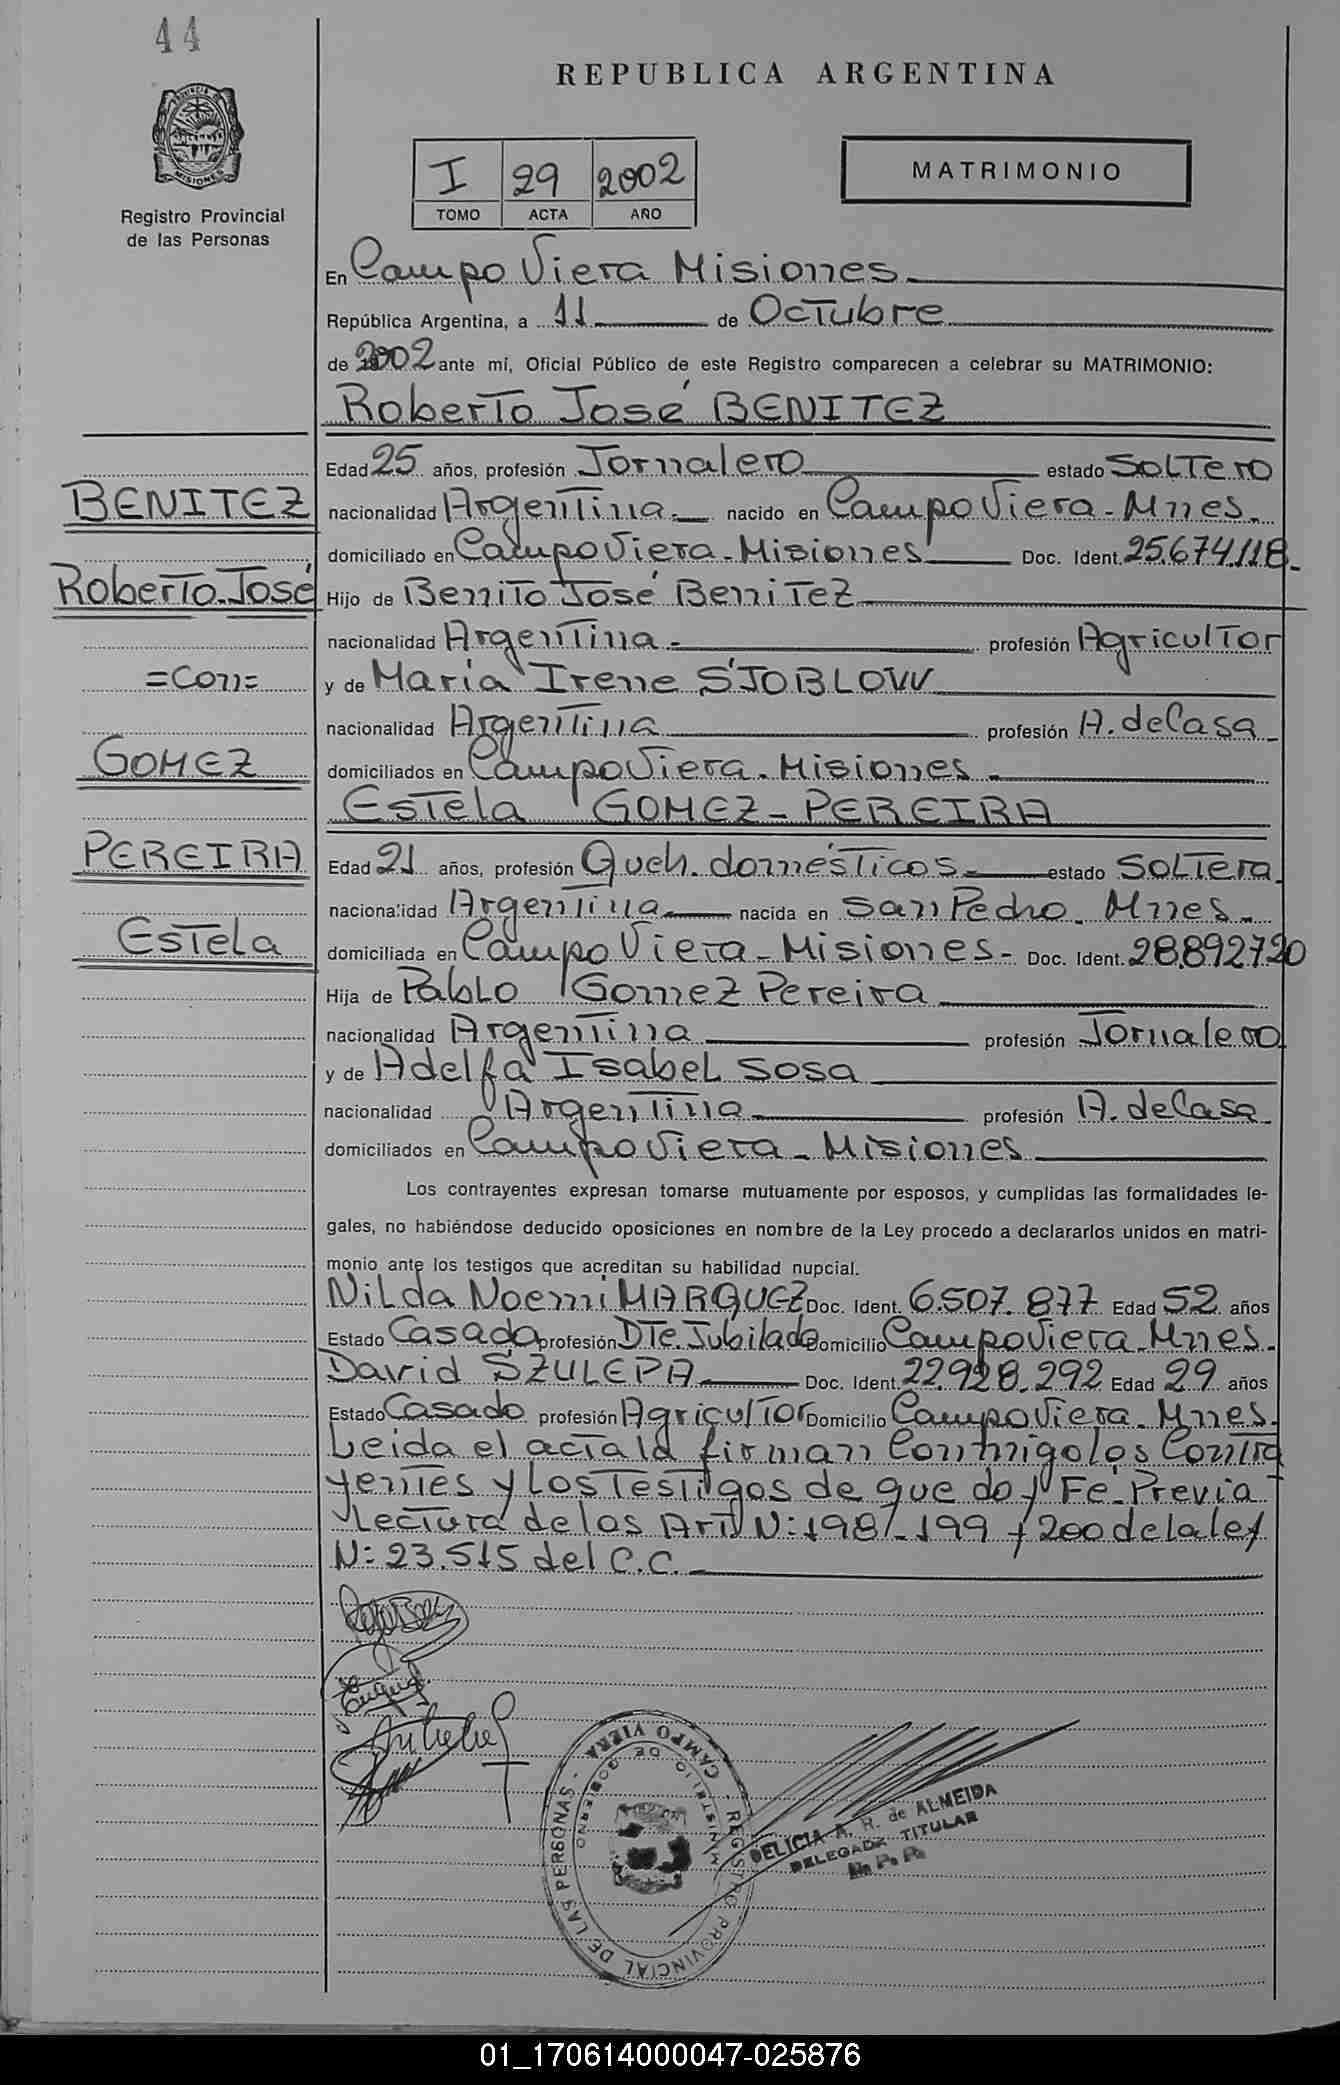 44
REPUBLICA ARGENTINA
PROVINCIA DE
MISIONES
Registro Provincial
de las Personas
I 29 2002
TOMO ACTA AÑO
MATRIMONIO
En Campo Viera Misiones
República Argentina, a 11 de Octubre
de 2002 ante mí, Oficial Público de este Registro comparecen a celebrar su MATRIMONIO:
Roberto José BENITEZ
Edad 25 años, profesión Jornalero estado Soltero
BENITEZ
nacionalidad Argentina nacido en Campo Viera - Mnes.
domiciliado en Campo Viera - Misiones Doc. Ident. 25.674.118
Roberto José
Hijo de Benito José Benitez
nacionalidad Argentina profesión Agricultor
=Con=
y de Maria Irene SJOBLOW
nacionalidad Argentina profesión A. de Casa
GOMEZ
domiciliados en Campo Viera - Misiones
Estela GOMEZ - PEREIRA
PEREIRA
Edad 21 años, profesión Queh. domésticos estado Soltera
nacionalidad Argentina nacida en San Pedro - Mnes
Estela
domiciliada en Campo Viera - Misiones - Doc. Ident. 28.892.720
Hija de Pablo Gomez Pereira
nacionalidad Argentina profesión Jornalero
y de Adelfa Isabel Sosa
nacionalidad Argentina profesión A. de Casa
domiciliados en Campo Viera - Misiones
Los contrayentes expresan tomarse mutuamente por esposos, y cumplidas las formalidades le-
gales, no habiéndose deducido oposiciones en nombre de la Ley procedo a declararlos unidos en matri-
monio ante los testigos que acreditan su habilidad nupcial.
Nilda Noemi MARQUEZ Doc. Ident. 6.507.877 Edad 52 años
Estado Casada profesión Dte. Jubilada Domicilio Campo Viera - Mnes.
David SZULEPA Doc. Ident. 22.928.292 Edad 29 años
Estado Casado profesión Agricultor Domicilio Campo Viera - Mnes.
Leida el acta la firman Conmigo los Contra
yentes y los Testigos de que doy Fé. Previa
Lectura de los Art. N: 198 - 199 y 200 de la ley
N: 23.515 del C.C.
REGISTRO PROVINCIAL DE LAS PERSONAS - CAMPO VIERA
MINISTERIO DE GOBIERNO
DELICIA A. R. de ALMEIDA
DELEGADA TITULAR
R. P. P.
01_170614000047-025876